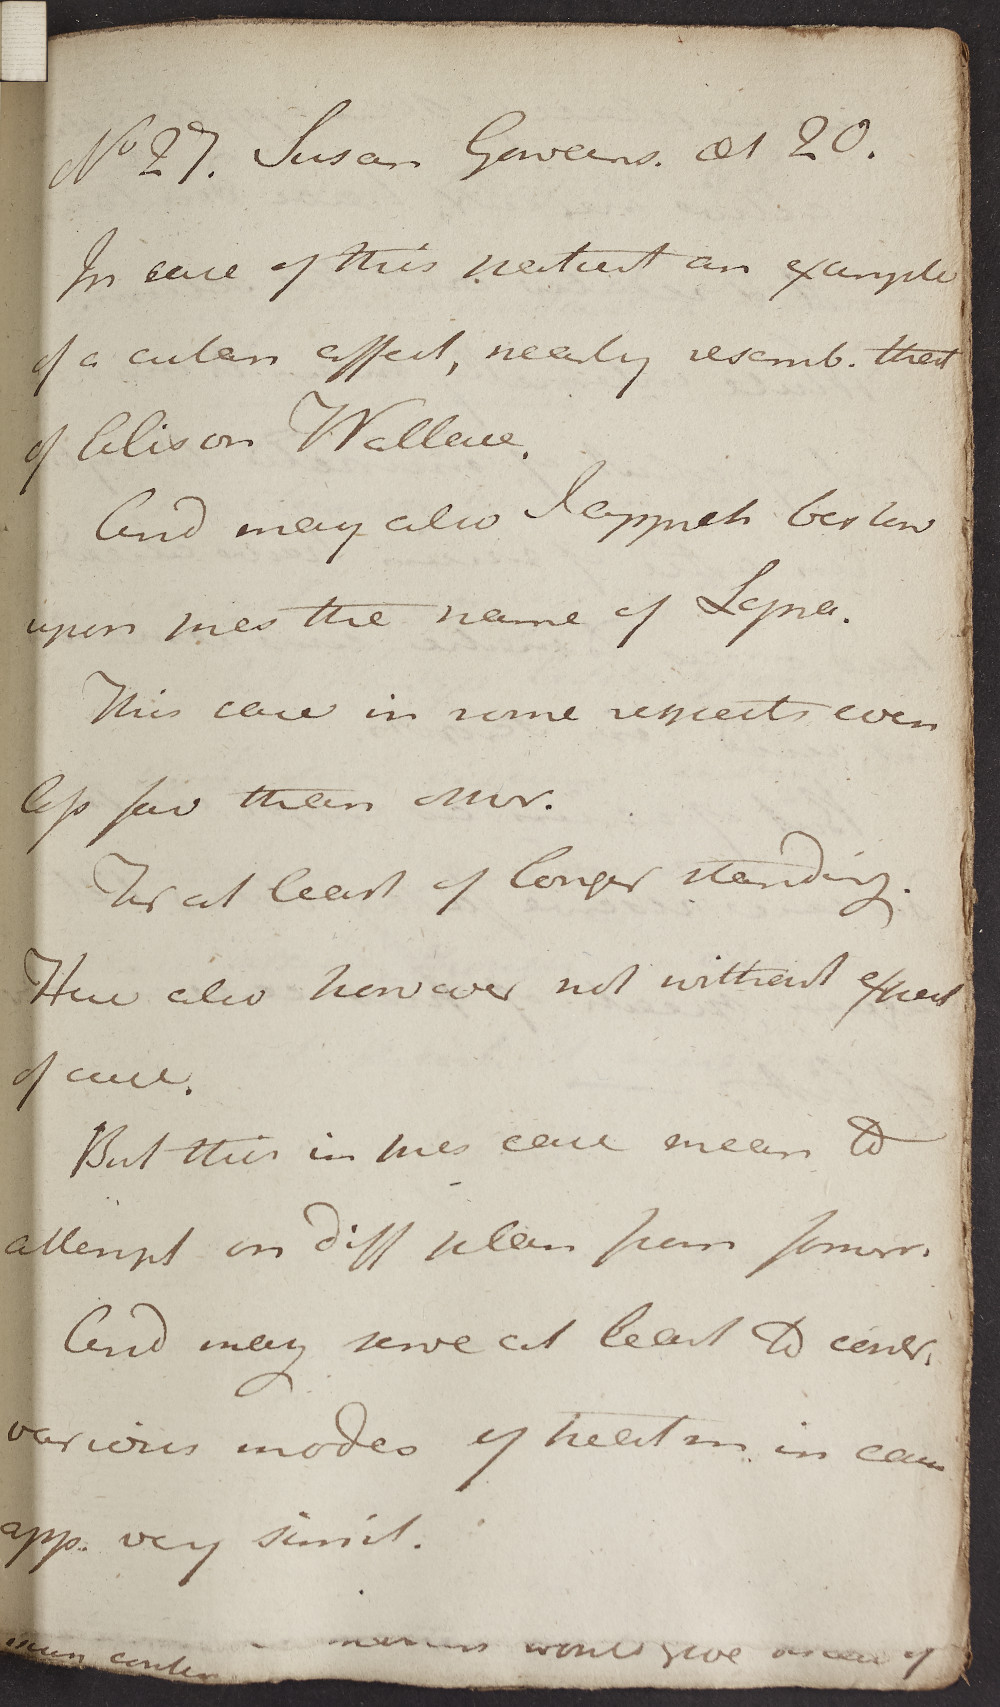 No 27. Susan Goveans. æt 20.
In case of this patient an example
of a cutan affect, nearly resemb. that
of Alison Wallace.
And may also I appreh bestow
upon pres the name of Lepra.
This case in some respects even
less fav than other.
For at least of longer standing.
Here also however not without expect
of cure.
But this in pres case mean to
attempt on diff plan from former.
And may serve at least to
various modes of treatm. in case
app. very simil.
would give